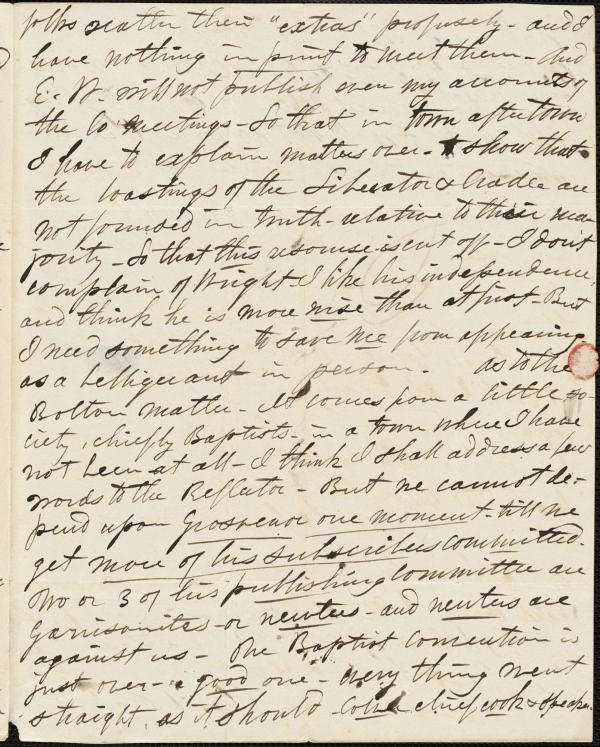 folks scatter their "extras" profusely - and I
have nothing in print to meet them - And
E. W. will not publish even my accounts of
the Co meetings - So that in town after town
I have to explain matters over - & show that
the boastings of the Liberator & Cradle are
not founded in truth - relative to their ma-
jority - So that this resourse is cut off - I don't
complain of Wright - I like his independence,
and think he is more wise than at first - But
I need something to save me from appearing
as a belligerant in person. as to the
Bolton matter - It comes from a little so-
ciety, chiefly Baptists - in a town where I have
not been at all - I think I shall address a few
words to the Reflector - But we cannot de-
pend upon Grosvenor one moment - till we
get more of his subscribers committed.
Two or 3 of his publishing committee are
Garrisonites - or neuters - and neuters are
against us - The Baptist convention is
just over - a good one - every thing went
straight, as it should - Colver chief cook & speaker